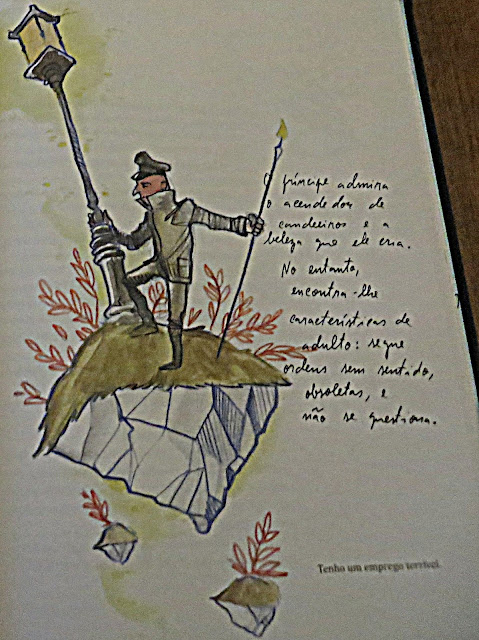 O príncipe admira
o acendedor de
candeeiros e a
beleza que ele cria.
No entanto,
encontra-lhe
características de
adulto: segue
ordens sem sentido,
obsoletas, e
não se questiona.
Tenho um emprego terrível.